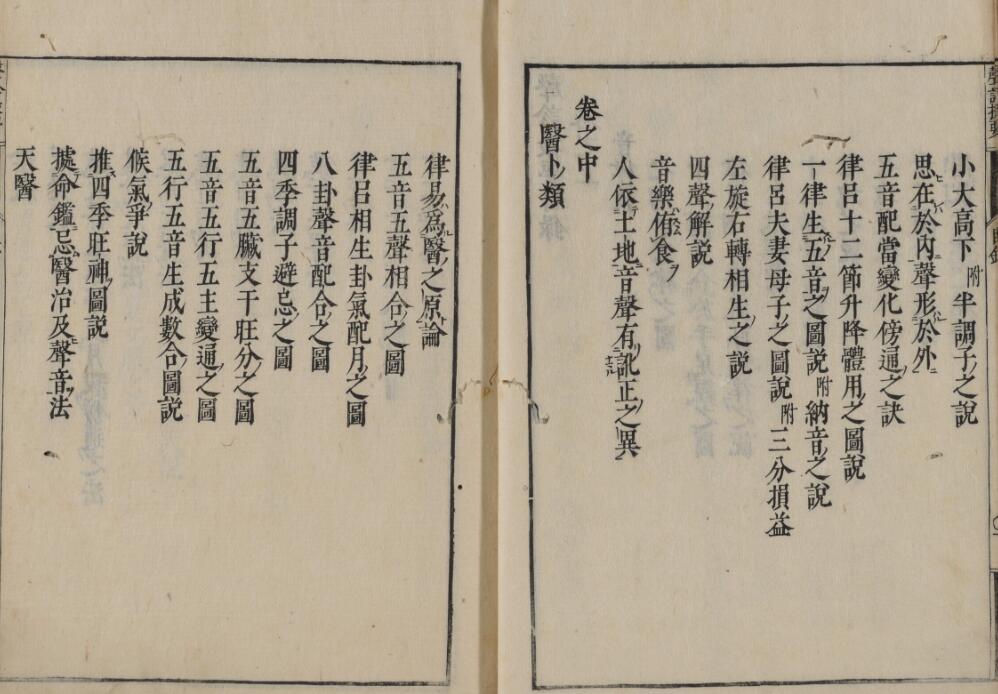 小大高下附半調子之説
思在於內聲形於外
五音配當變化傍通之訣
律呂十二節升降體用之圖説
一律生五音之圖説附納音之説
律呂夫妻母子之圖説附三分損益
左旋右轉相生之説
四聲解説
音樂侑食
人依土地音聲有訛正之異
卷之中
醫卜類
律易爲醫之原論
五音五聲相合之圖
律呂相生卦氣配月之圖
八卦聲音配合之圖
四季調子避忌之圖
五音五臟支干旺分之圖
五音五行五主變通之圖
五行五音生成數合圖説
候氣爭説
推四季旺神圖説
據命鑑忌醫治及聲音法
天醫